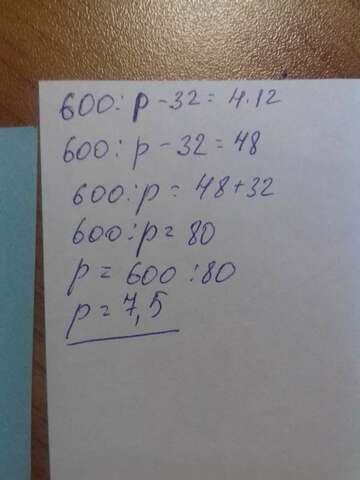 600:p-32=4.12
600:p-32=48
600:p=48+32
600:p=80
p=600:80
p=7,5